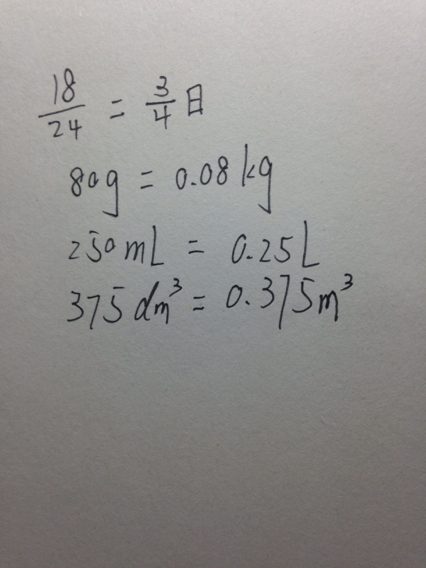 18/24 = 3/4 日
80g = 0.08kg
250mL = 0.25L
375dm³ = 0.375m³